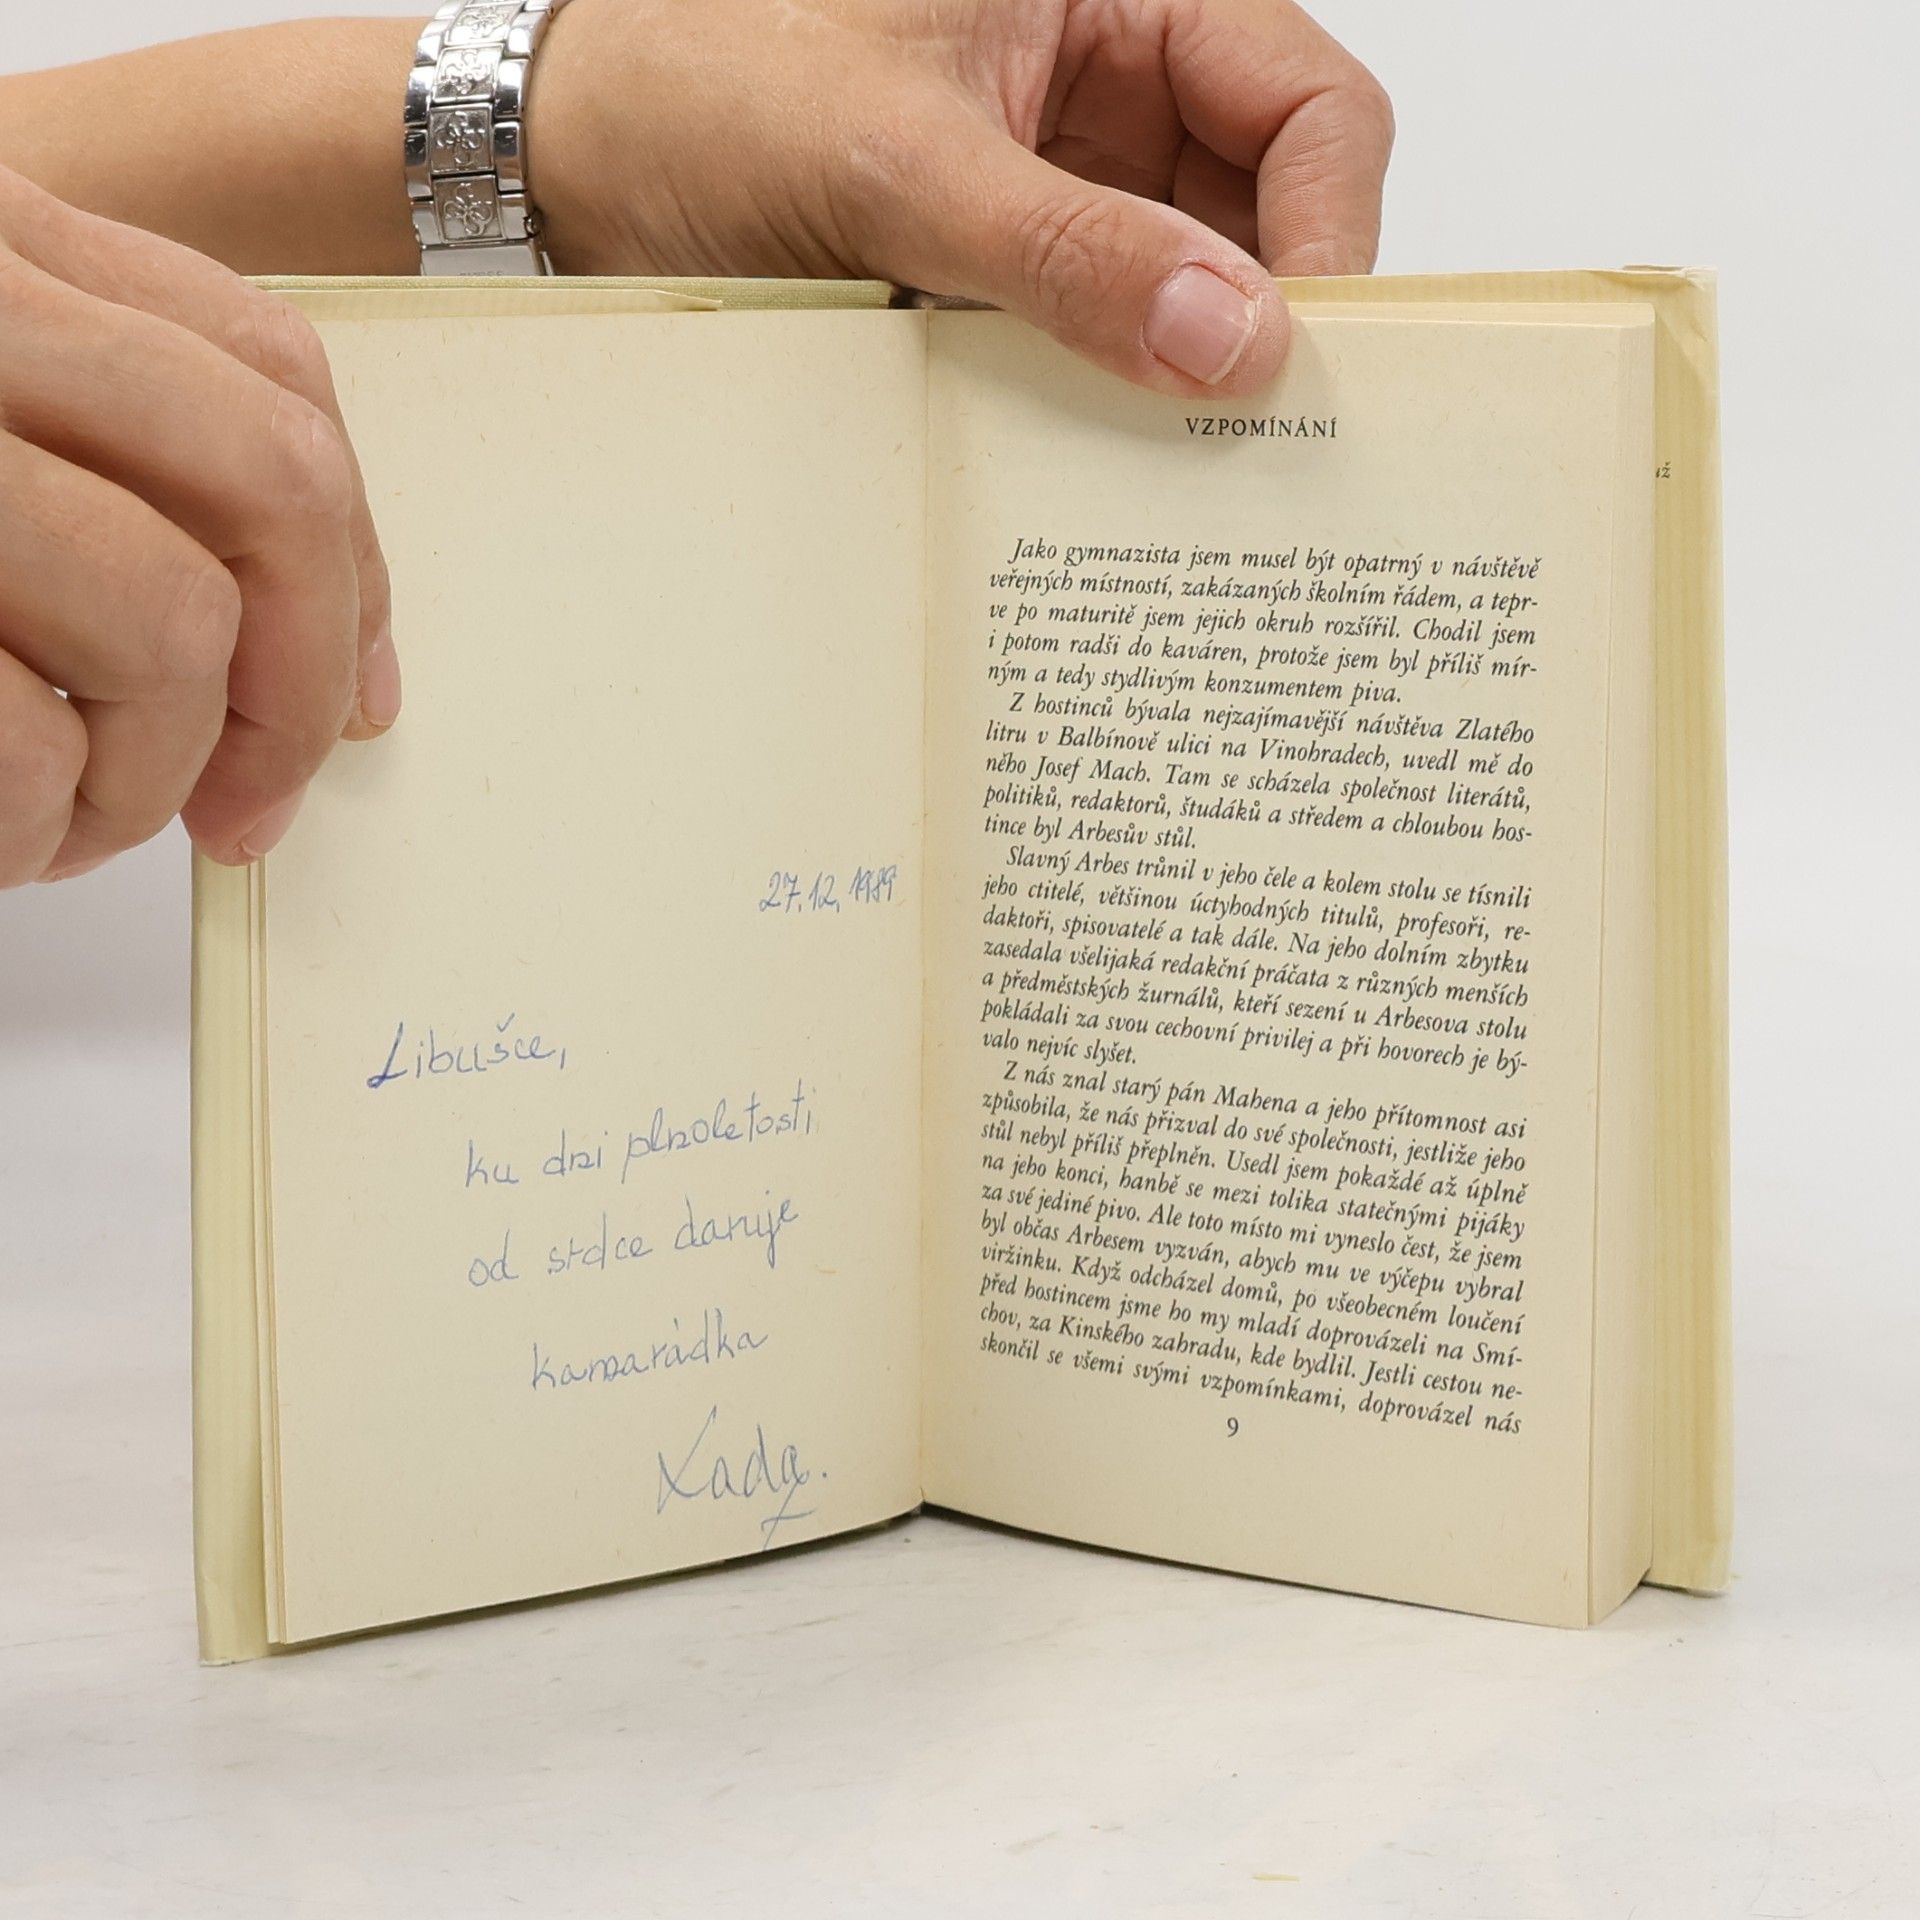 27.12.1989
Libušce,
ku dni plnoletosti
od srdce daruje
kamarádka
Lada.
VZPOMÍNÁNÍ
Jako gymnazista jsem musel být opatrný v návštěvě
veřejných místností, zakázaných školním řádem, a tepr-
ve po maturitě jsem jejich okruh rozšířil. Chodil jsem
i potom radši do kaváren, protože jsem byl příliš mír-
ným a tedy stydlivým konzumentem piva.
Z hostinců bývala nejzajímavější návštěva Zlatého
litru v Balbínově ulici na Vinohradech, uvedl mě do
něho Josef Mach. Tam se scházela společnost literátů,
politiků, redaktorů, študáků a středem a chloubou hos-
tince byl Arbesův stůl.
Slavný Arbes trůnil v jeho čele a kolem stolu se tísnili
jeho ctitelé, většinou úctyhodných titulů, profesoři, re-
daktoři, spisovatelé a tak dále. Na jeho dolním zbytku
zasedala všelijaká redakční práčata z různých menších
a předměstských žurnálů, kteří sezení u Arbesova stolu
pokládali za svou cechovní privilej a při hovorech je bý-
valo nejvíc slyšet.
Z nás znal starý pán Mahena a jeho přítomnost asi
způsobila, že nás přizval do své společnosti, jestliže jeho
stůl nebyl příliš přeplněn. Usedl jsem pokaždé až úplně
na jeho konci, hanbě se mezi tolika statečnými pijáky
za své jediné pivo. Ale toto místo mi vyneslo čest, že jsem
byl občas Arbesem vyzván, abych mu ve výčepu vybral
viržinku. Když odcházel domů, po všeobecném loučení
před hostincem jsme ho my mladí doprovázeli na Smí-
chov, za Kinského zahradu, kde bydlil. Jestli cestou ne-
skončil se všemi svými vzpomínkami, doprovázel nás
9